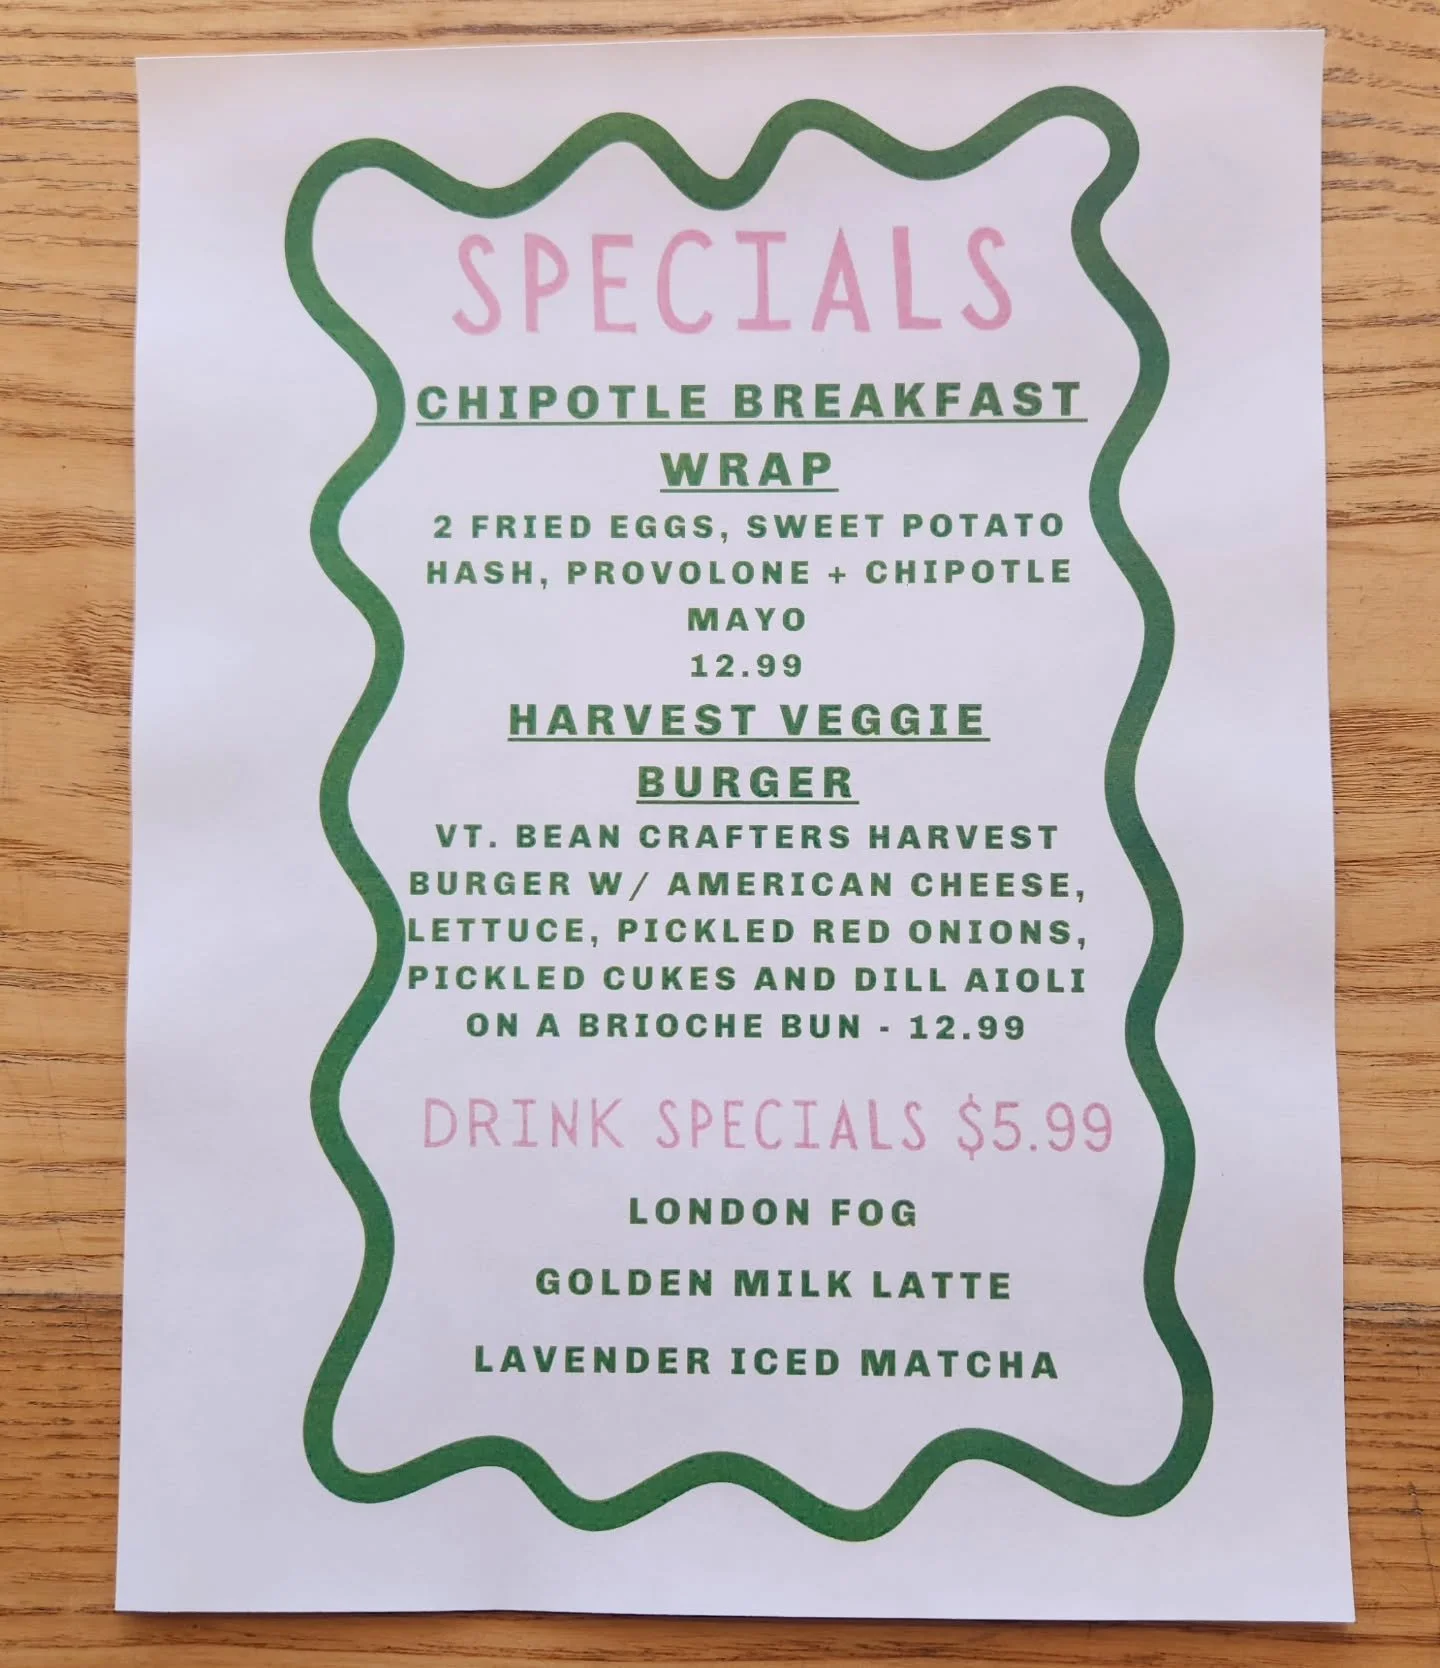 SPECIALS
CHIPOTLE BREAKFAST
WRAP
2 FRIED EGGS, SWEET POTATO
HASH, PROVOLONE + CHIPOTLE
MAYO
12.99
HARVEST VEGGIE
BURGER
VT. BEAN CRAFTERS HARVEST
BURGER W/ AMERICAN CHEESE,
LETTUCE, PICKLED RED ONIONS,
PICKLED CUKES AND DILL AIOLI
ON A BRIOCHE BUN - 12.99
DRINK SPECIALS $5.99
LONDON FOG
GOLDEN MILK LATTE
LAVENDER ICED MATCHA